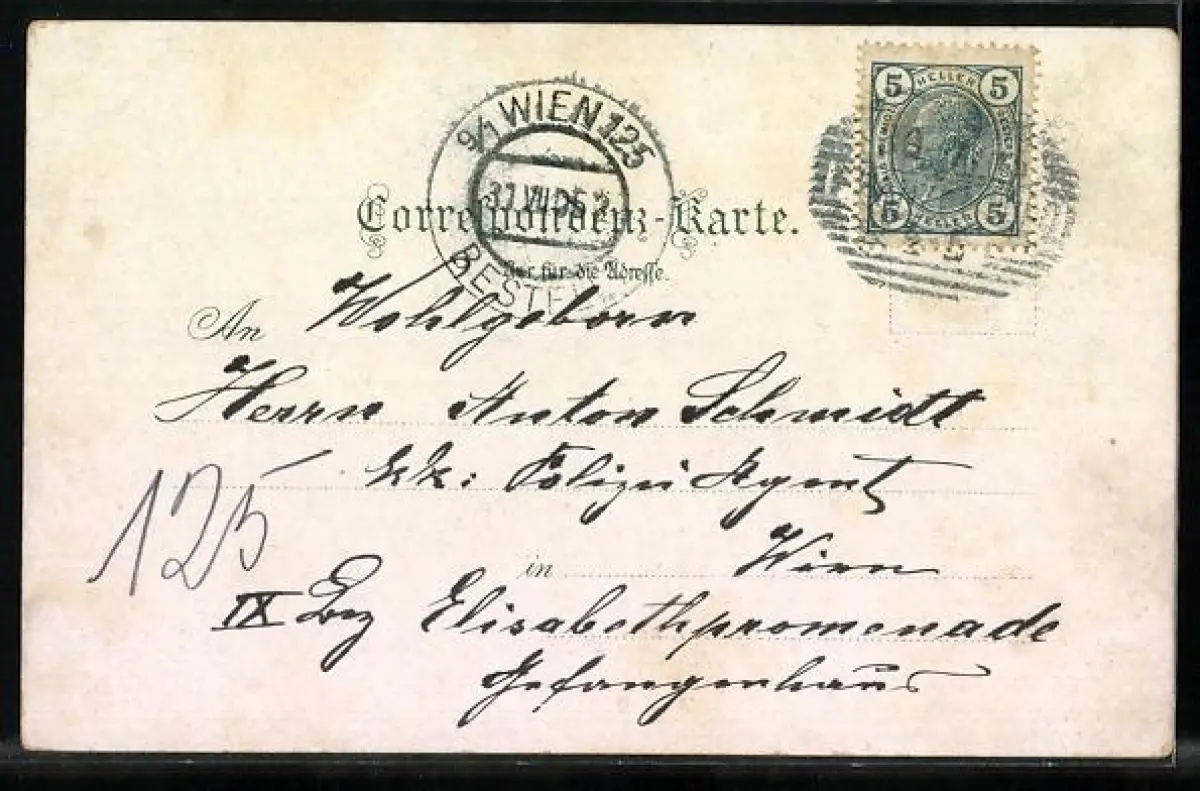 5 HELLER 5
5 HELLER 5
9/1 WIEN 125
BESTELLT
Correspondenz-Karte.
Nur für die Adresse.
An Wohlgeborn
Herrn Anton Schmidt
kk: Polizei Agent
125
in Wien
IX Bez Elisabethpromenade
Gefangenhaus